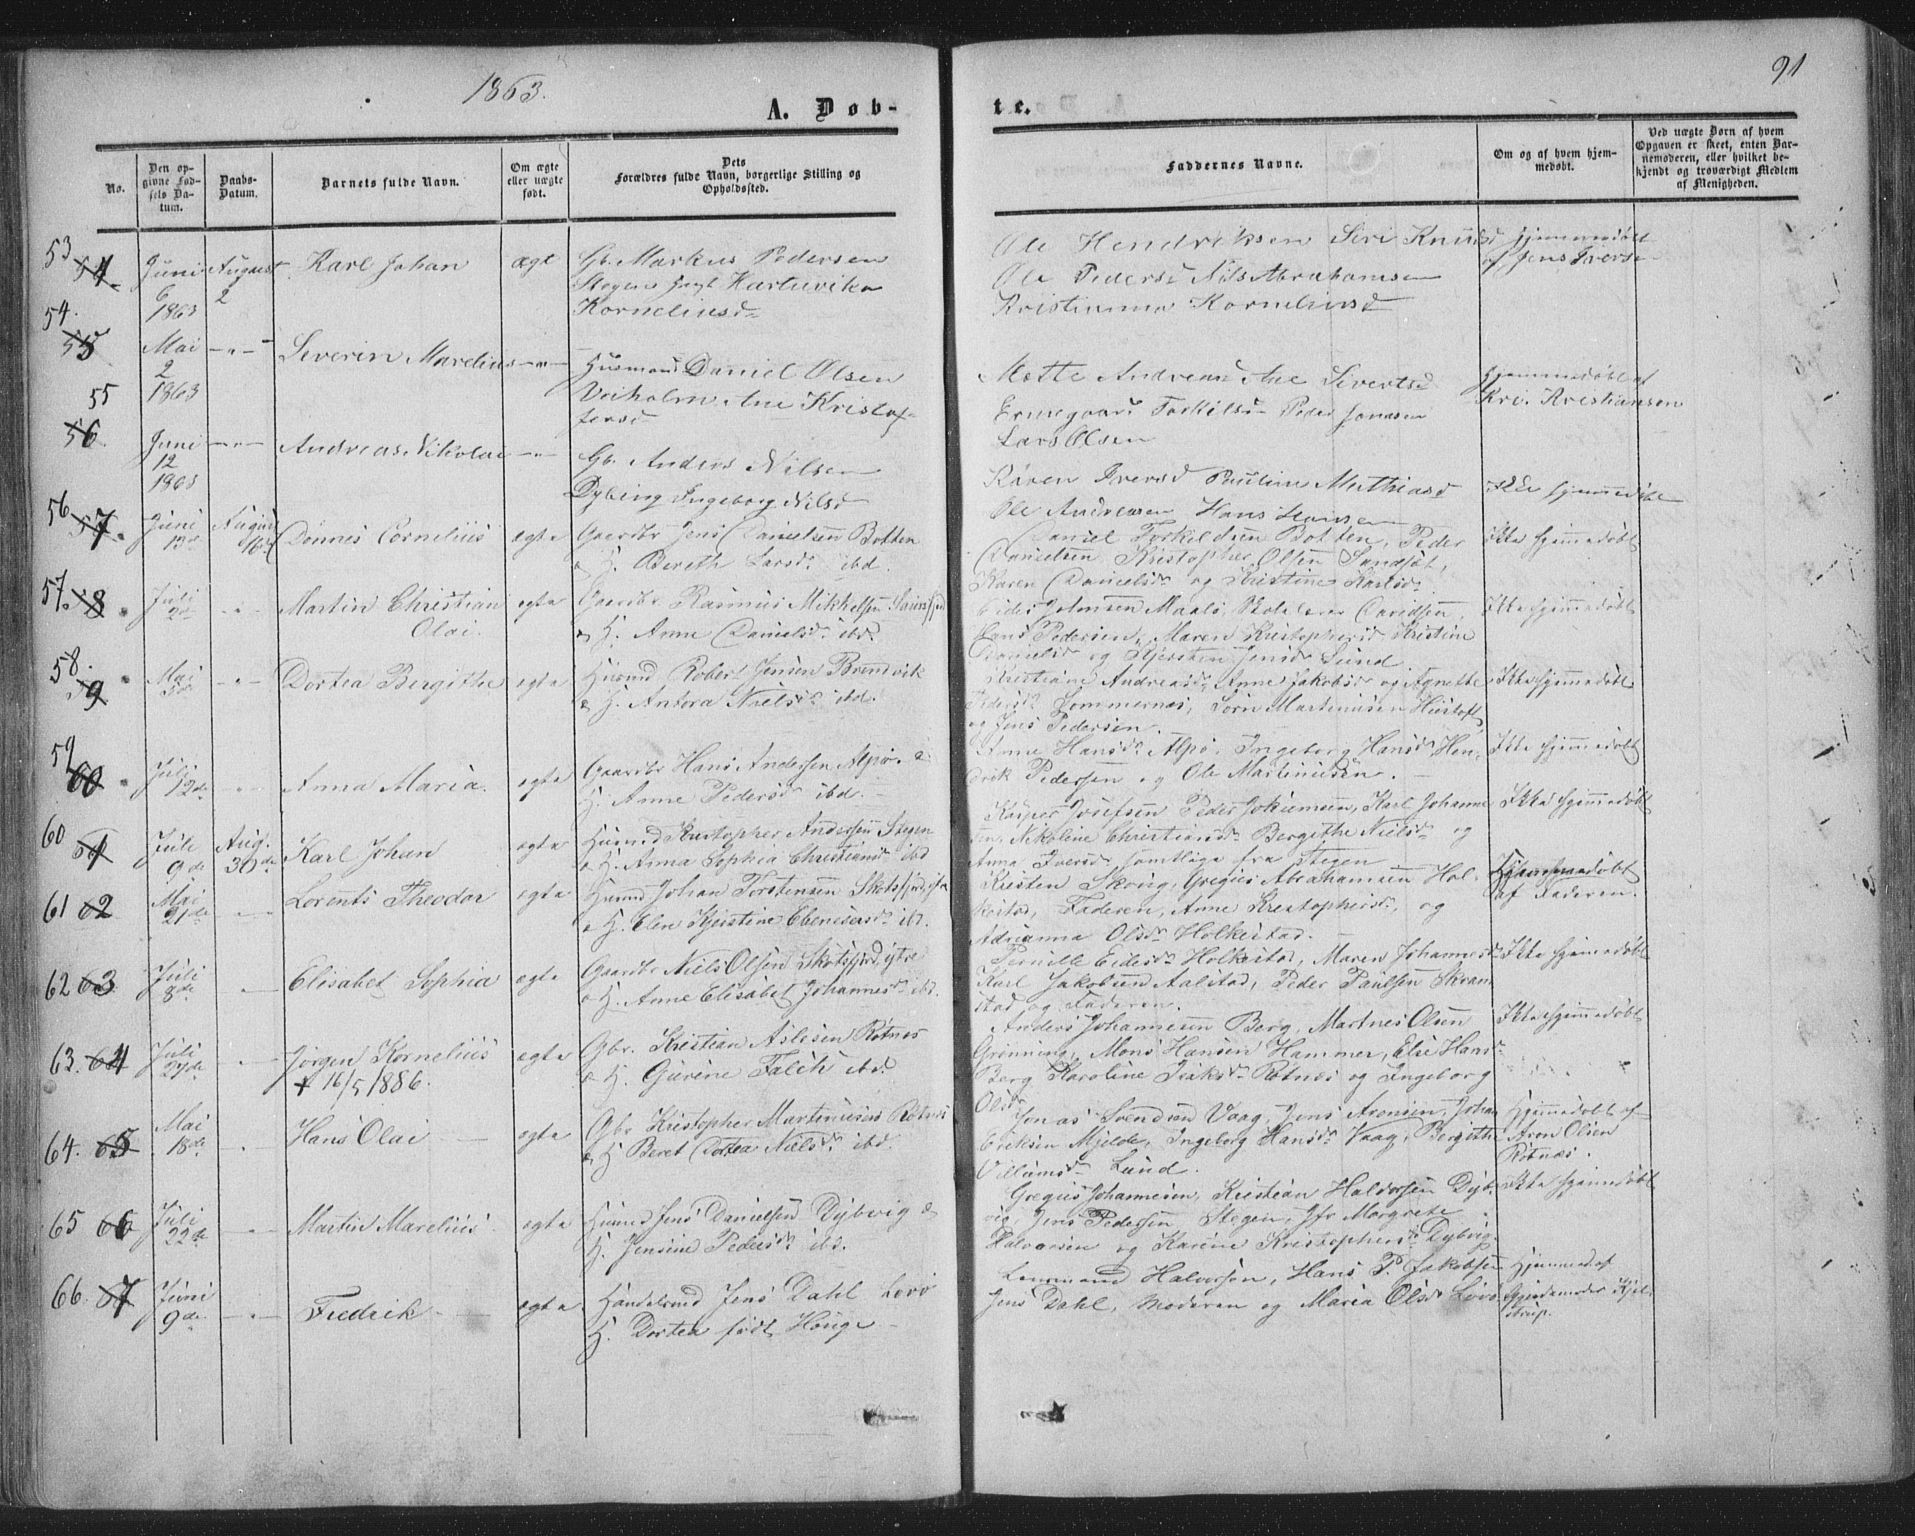 1863.
91
A. Døb-
te.
No.
Den op-
givne Fød-
sels Da-
tum.
Daabs-
Datum.
Barnets fulde Navn.
Om ægte
eller uægte
født.
Dets
Forældres fulde Navn, borgerlige Stilling og
Opholdssted.
Faddernes Navne.
Om og af hvem hjem-
medøbt.
Ved uægte Børn af hvem
Opgaven er skeet, enten Bar-
nemoderen, eller hvilket be-
kjendt og troværdigt Medlem
af Menigheden.
53 54
Juni
6
1863
August
2
Karl Johan
ægte
Gb. Markus Pedersen
Stegen Hartvika
Korneliusd
Ole Hendriksen Siri Knudsd
Ole Pedersd Nils Abrahamsen
Kristianna Korneliusd
Hjemmedøbt
af Jens Iversen
54. 55
Mai
2
1863
- " -
Severin Marelius
- " -
Husmand Daniel Olsen
Veiholm Ane Kristof-
fersd
Mette Andreasd Ane Sivertsd
Ermegaard Torkilsd Peder Jonasen
Lars Olsen
Hjemmedøbt af
Kri. Kristiansen
55 56
Juni
12
1863
- " -
Andreas Nikolai
- " -
Gb. Anders Nilsen
Dybing Ingeborg Nilsd
Karen Iversd Pauline Mathiasd
Ole Andreasen Hans Hansen
Ikke hjemmedøbt
56 57.
Juni
13de
August
16de
Dønnes Cornelius
ægte
Gaardbr Jens Danielsen Botten
& H. Bereth Larsd. ibd.
Daniel Torkildsen Botten, Peder
Danielsen Kristopher Olsen Sandsøt,
Karen Danielsd og Kristine Karlsd.
Ikke hjemmedøbt
57. 58
Juli
2de
- " -
Martin Christian
Olai.
egte
Gaardbr Rasmus Mikkelsen
& H. Anne Danielsd. ibd.
Eides Johnsen Maalø, Skolelærer Davidsen,
Hans Pedersen, Maren Kristophersd. Kristine
Danielsd og Kjersten Jensd. Lund
Ikke hjemmedøbt
58. 59
Mai
- " -
Dortea Bergithe
egte
Husmd Robert Jensen Brendvik
& H. Antora Nielsd. ibd.
Kristiane Andreasd, Anne Jakobsd og Agnette
Pedersd. Sommernæs, Sørn Martinusen Hustoft
og Jens Pedersen.
Ikke hjemmedøbt
59 60
Juli
12de
- " -
Anna Maria.
egte
Gaardbr Hans Andersen Alpø. &
H. Anne Pedersd ibd.
Anne Hansd. Alpø, Ingeborg Hansd. Hen-
drik Pedersen og Ole Martinusen.
Ikke hjemmedøbt
60 61
Juli
9de
Aug.
30de
Karl Johan
ægte
Husmd Kristopher Andersen Stegen
& H. Anna Sophia Christiansd. ibd
Kasper Josefsen Peder Jokumsen, Karl Johanne
sen, Nikoline Christiansd. Bergithe Nielsd. og
Anna Iversd. samtlige fra Stegen
Ikke hjemmedøbt
61 62
Mai
21de
- " -
Lorents Theodor
ægte
Husmd Johan Torstensen Skotsfjord
& H. Elen Kjerstine Ebenesersd. ibd.
Kristen Skovig, Gregius Abrahamsen Hol-
kestad, Faderen, Anne Kristophersd, og
Adrianna Olsd. Holkestad.
Hjemmedøbt
af Faderen.
62 63
Juli
8de
- " -
Elisabet Sophia
egte
Gaardbr Niels Olsen Skotsfjord, ytre
& H. Anne Elisabet Johannesd. ibd.
Pernille Eidesd. Holkestad, Maren Johannesd.
Karl Jakobsen Aalstad, Peder Paulsen Skram
stad og Faderen.
Ikke hjemmedøbt
63. 64
Juli
27de
- " -
Jørgen Kornelius
+ 16/5 1886.
ægte
Gbr. Kristian Aslesen Røtnes
& H. Gurine Falch ibd.
Anders Johannesen Berg, Martnes Olsen
Grønning, Mons Hansen Hammer, Else Hansd.
Berg Karoline Isaksd. Røtnes og Ingeborg
Olsd.
Ikke hjemmedøbt
64. 65
Mai
18de
- " -
Hans Olai
egte
Gbr Kristopher Martinusen Røtnes
& H. Beret Dortea Nielsd. ibd.
Jonas Svendsen Vaag, Jens Aronsen, Johan
Eriksen Mjelde, Ingeborg Hansd. Vaag, Bergithe
Villumsd. Lund.
Hjemmedøbt af
Aron Olsen
Røtnæs.
65 66
Juli
22de
- " -
Martin Marelius
egte
Husmd Jens Danielsen Dybvig &
H. Jensine Pedersd. ibd.
Gregius Johannesen, Kristian Halvorsen Dyb-
vig, Jens Pedersen Stegen, Jfr Margrete
Halvorsen og Karine Kristophersd. Dybvig.
Ikke hjemmedøbt
66. 67
Juni
9de
- " -
Fredrik
ægte
Handelsmd Jens Dahl Løvø
H. Dortea født Houge
Lensmand Halvorsen, Hans P. Jakobsen
Jens Dahl, Moderen og Maria Olsd. Løvø
Hjemmed. af
Gjordemoder Kjel-
strup.